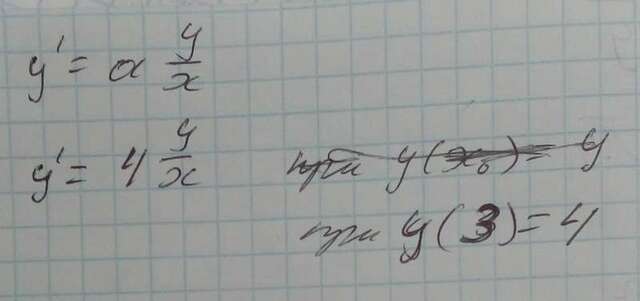 y' = α y/x
y' = 4 y/x при y(x₀) = y
при y(3) = 4